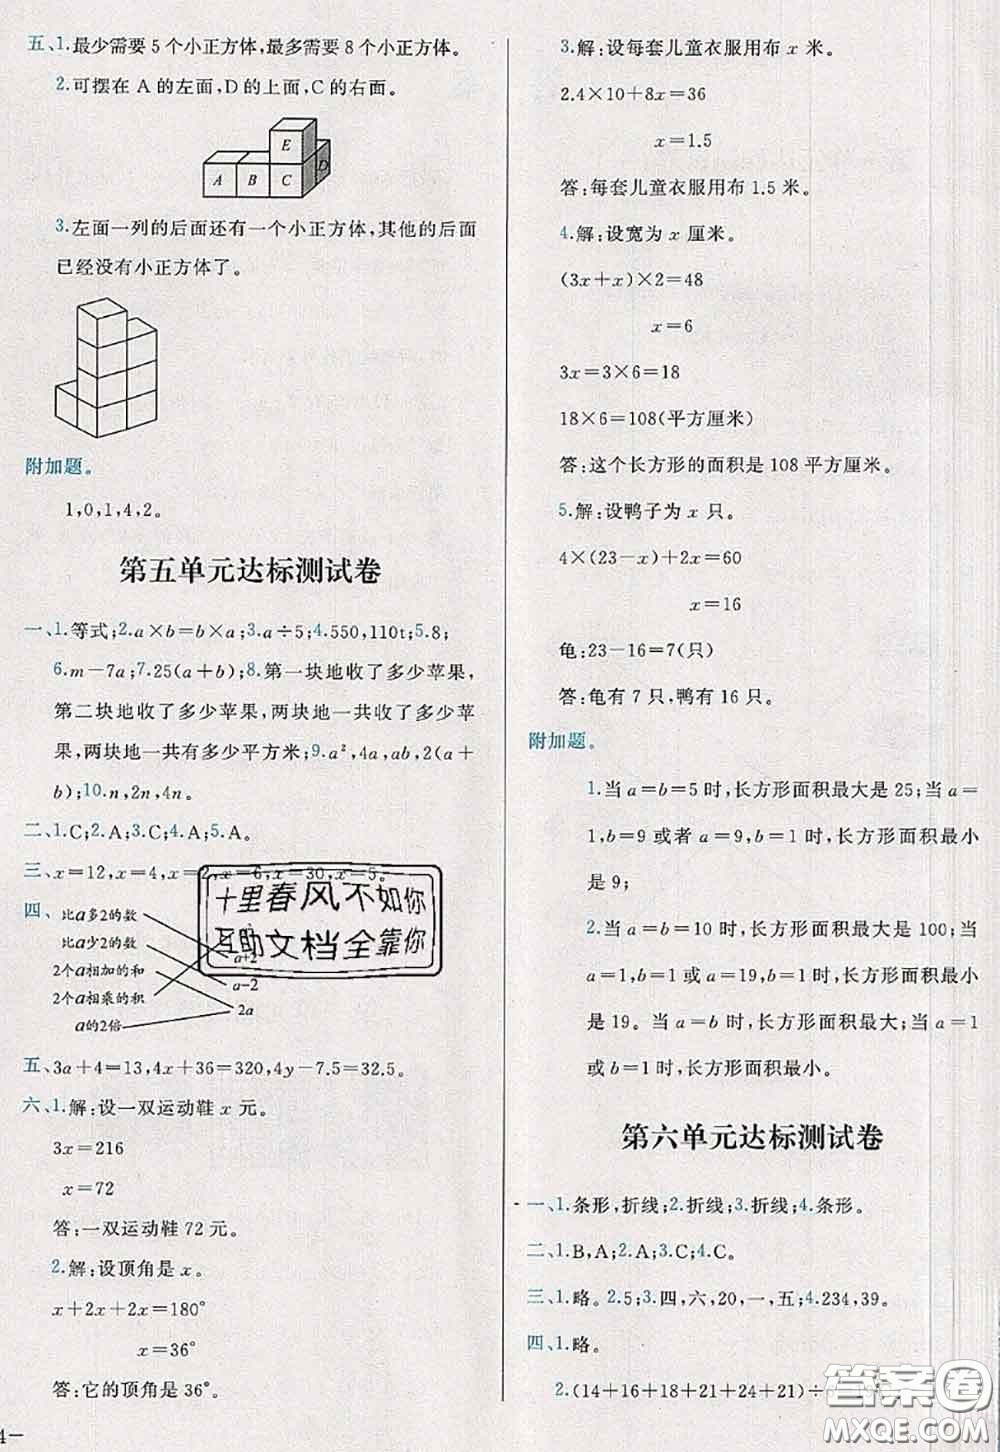 五、1.最少需要5个小正方体,最多需要8个小正方体。
2.可摆在A的左面,D的上面,C的右面。
E
A B C D
3.左面一列的后面还有一个小正方体,其他的后面
已经没有小正方体了。
附加题。
1,0,1,4,2。
第五单元达标测试卷
一、1.等式;2.a×b=b×a;3.a÷5;4.550,110t;5.8;
6.m-7a;7.25(a+b);8.第一块地收了多少苹果,
第二块地收了多少苹果,两块地一共收了多少苹
果,两块地一共有多少平方米;9.a²,4a,ab,2(a+
b);10.n,2n,4n。
二、1.C;2.A;3.C;4.A;5.A。
三、x=12,x=4,x=2,x=6,x=30,x=5。
十里春风不如你
互助文档全靠你
四、比a多2的数
比a少2的数
2个a相加的和
2个a相乘的积
a的2倍
a+2
a-2
2a
五、3a+4=13,4x+36=320,4y-7.5=32.5。
六、1.解:设一双运动鞋x元。
3x=216
x=72
答:一双运动鞋72元。
2.解:设顶角是x。
x+2x+2x=180°
x=36°
答:它的顶角是36°。
4-
3.解:设每套儿童衣服用布x米。
2.4×10+8x=36
x=1.5
答:每套儿童衣服用布1.5米。
4.解:设宽为x厘米。
(3x+x)×2=48
x=6
3x=3×6=18
18×6=108(平方厘米)
答:这个长方形的面积是108平方厘米。
5.解:设鸭子为x只。
4×(23-x)+2x=60
x=16
龟:23-16=7(只)
答:龟有7只,鸭有16只。
附加题。
1.当a=b=5时,长方形面积最大是25;当a=
1,b=9或者a=9,b=1时,长方形面积最小
是9;
2.当a=b=10时,长方形面积最大是100,当
a=1,b=19或a=19,b=1时,长方形面积最小
是19。当a=b时,长方形面积最大;当a=1
或b=1时,长方形面积最小。
第六单元达标测试卷
一、1.条形,折线;2.折线;3.折线;4.条形。
二、1.B,A;2.A;3.C;4.C。
三、1.略。2.5;3.四,六,20,一,五;4.234,39。
四、1.略。
2.(14+16+18+21+24+21)÷
答案圈
MXQE.COM